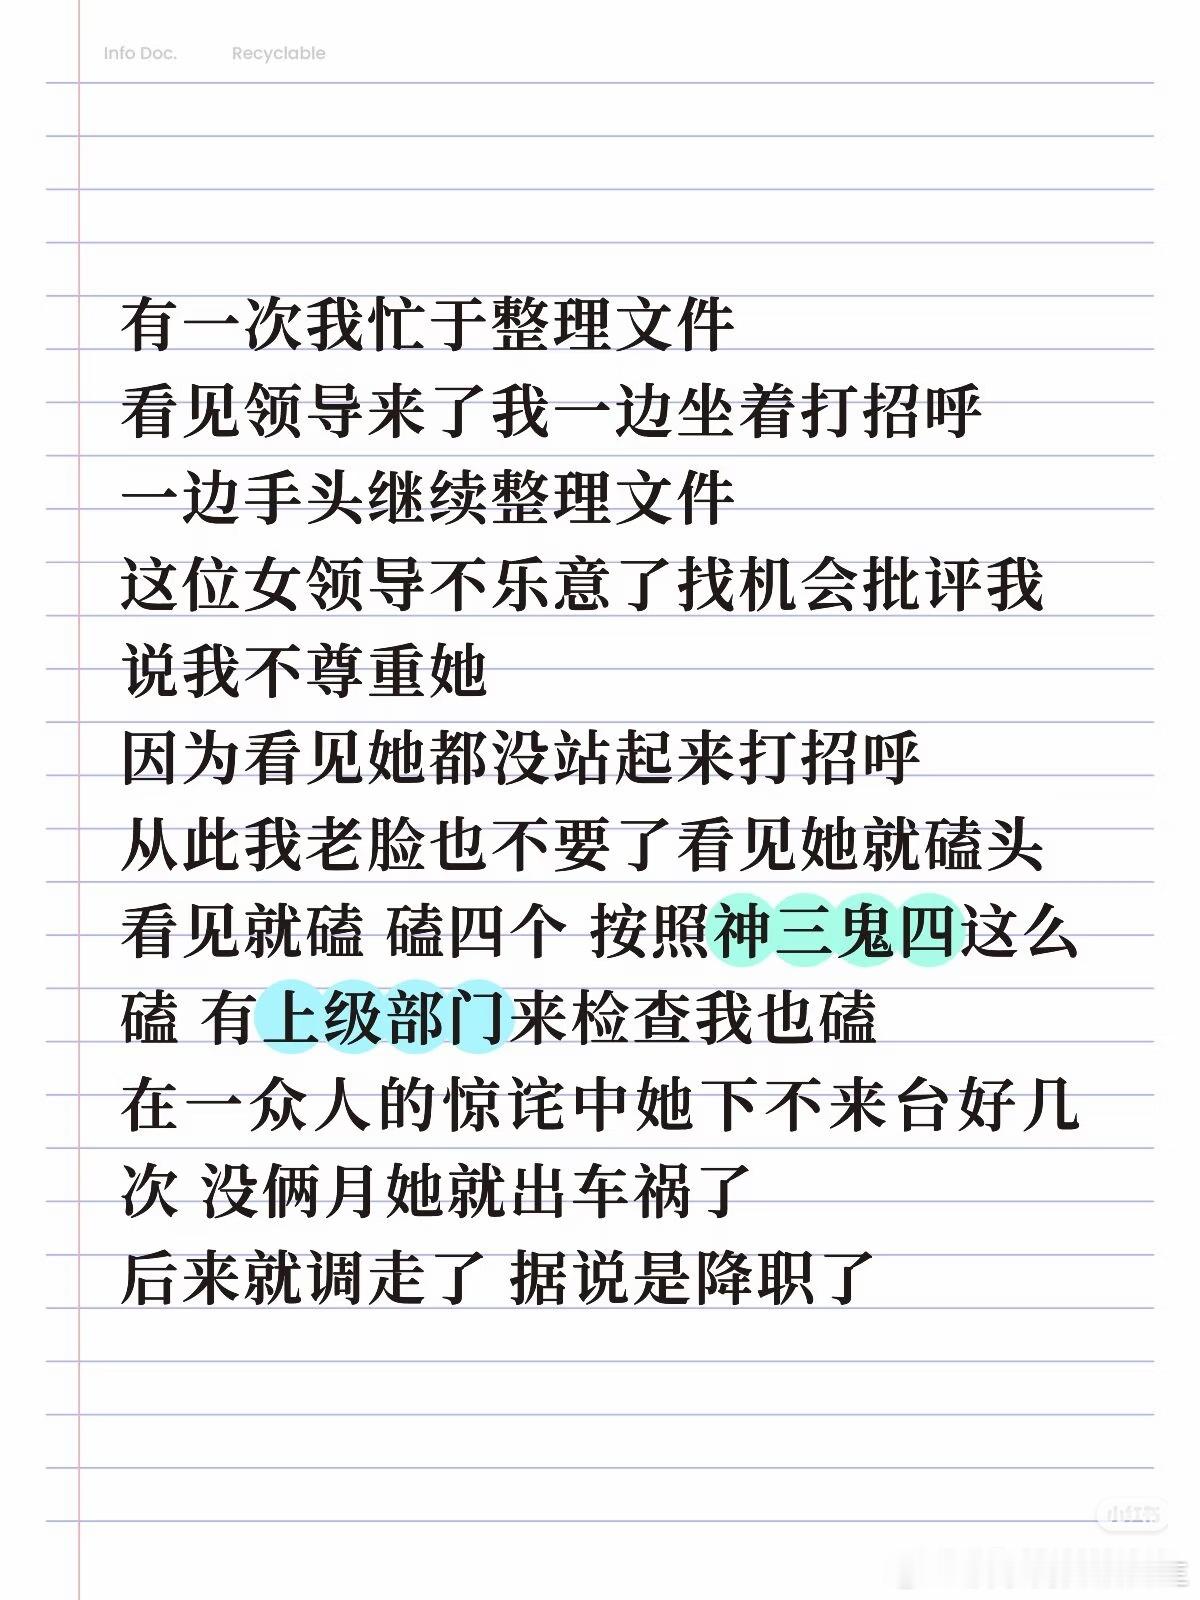 Info Doc. Recyclable
有一次我忙于整理文件
看见领导来了我一边坐着打招呼
一边手头继续整理文件
这位女领导不乐意了找机会批评我
说我不尊重她
因为看见她都没站起来打招呼
从此我老脸也不要了看见她就磕头
看见就磕 磕四个 按照神三鬼四这么
磕 有上级部门来检查我也磕
在一众人的惊诧中她下不来台好几
次 没俩月她就出车祸了
后来就调走了 据说是降职了
小红书